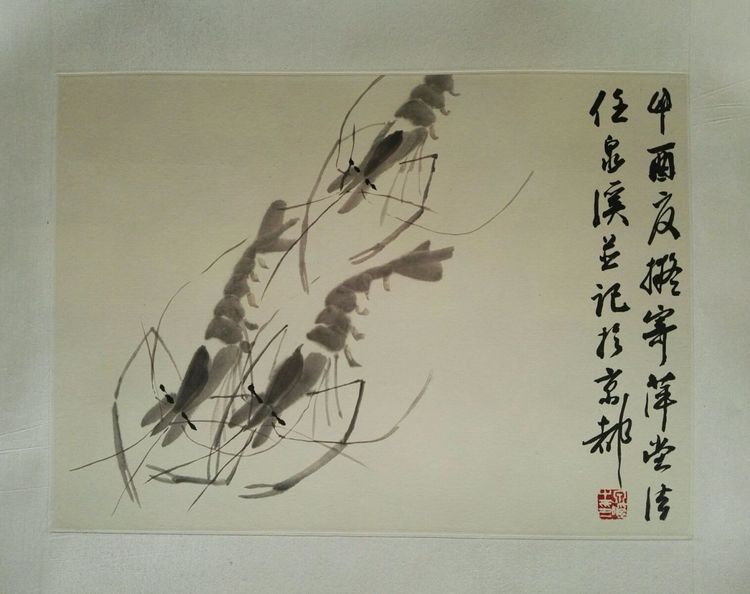 酉夏擬寄萍堂法
任泉溪並記於京都